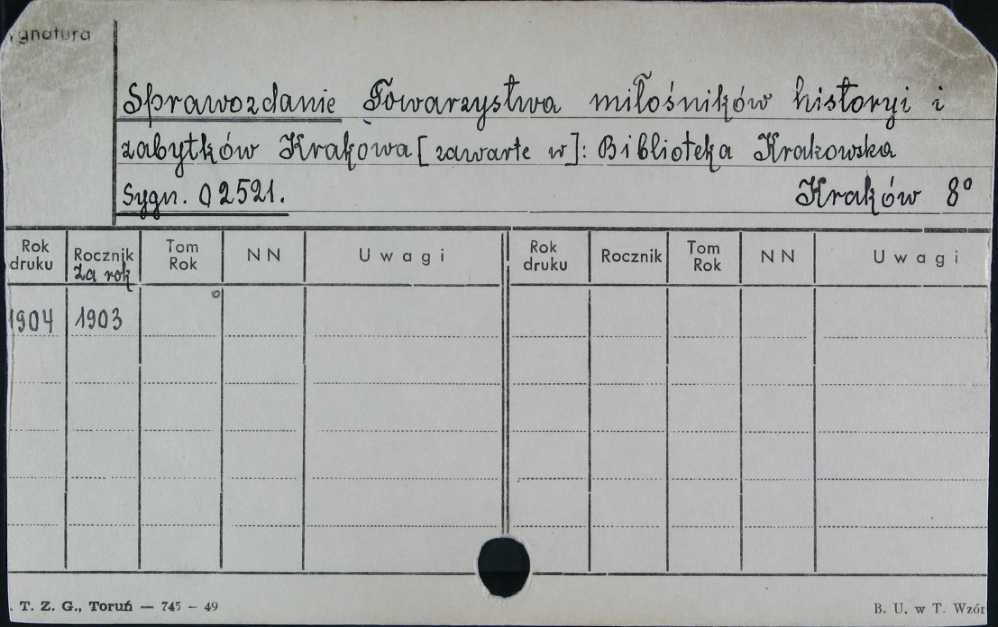 ygnatura
Sprawozdanie Towarzystwa miłośników historyi i
zabytków Krakowa [zawarte w]: Biblioteka Krakowska
Sygn. 02521. Kraków 8°
Rok druku Rocznik za rok Tom Rok NN Uwagi Rok druku Rocznik Tom Rok NN Uwagi
1904 1903
. T. Z. G., Toruń — 745 – 49 B. U. w T. Wzór